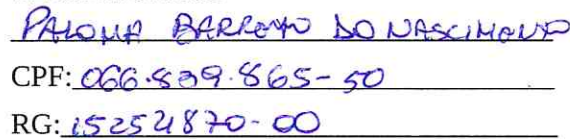 PALOMA BARRETO DO NASCIMENTO
CPF: 066.839.865-50
RG: 15251870-00